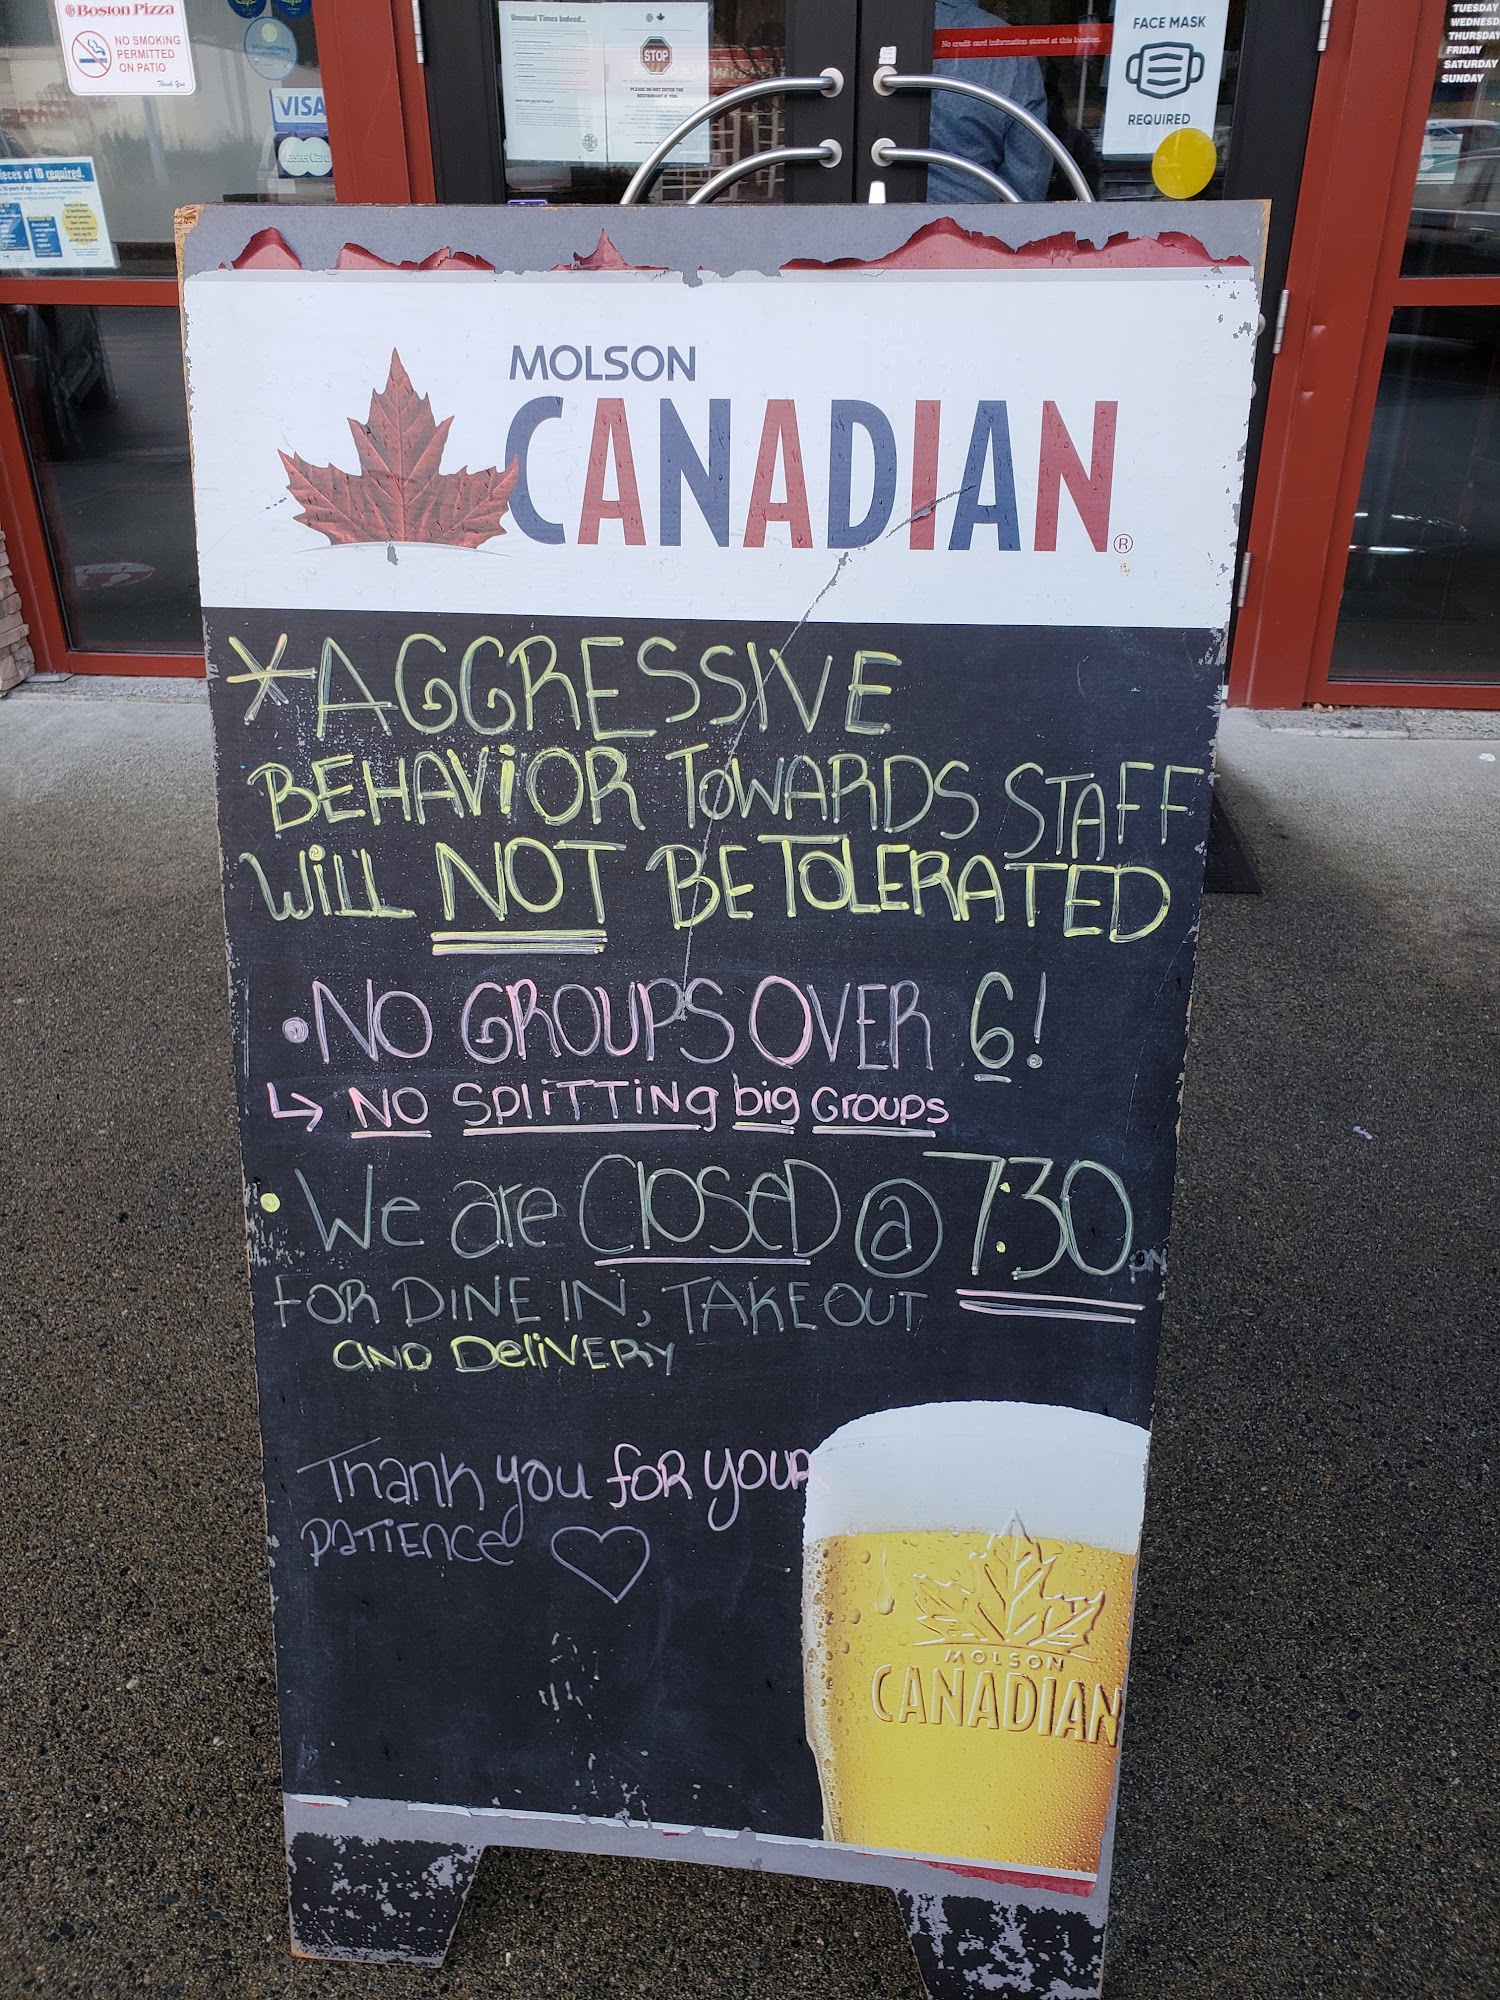 Boston Pizza
NO SMOKING
PERMITTED
ON PATIO
Thank You
VISA
MasterCard
ieces of ID required.
Unusual Times Indeed...
STOP
PLEASE DO NOT ENTER THE
RESTAURANT IF YOU:
No credit card information stored at this location.
FACE MASK
REQUIRED
TUESDAY
WEDNESD
THURSDAY
FRIDAY
SATURDAY
SUNDAY
MOLSON
CANADIAN®
*AGGRESSIVE
BEHAViOR TOWARDS STAFF
WiLL NOT BE TOLERATED
•NO GROUPS OVER 6!
↳ NO SPLiTTiNg big GROUPS
• We are CloseD @ 7:30 PM
FOR DINE IN, TAKE OUT
AND DeliVERY
Thank you for your
PATIENCE ♡
MOLSON
CANADIAN